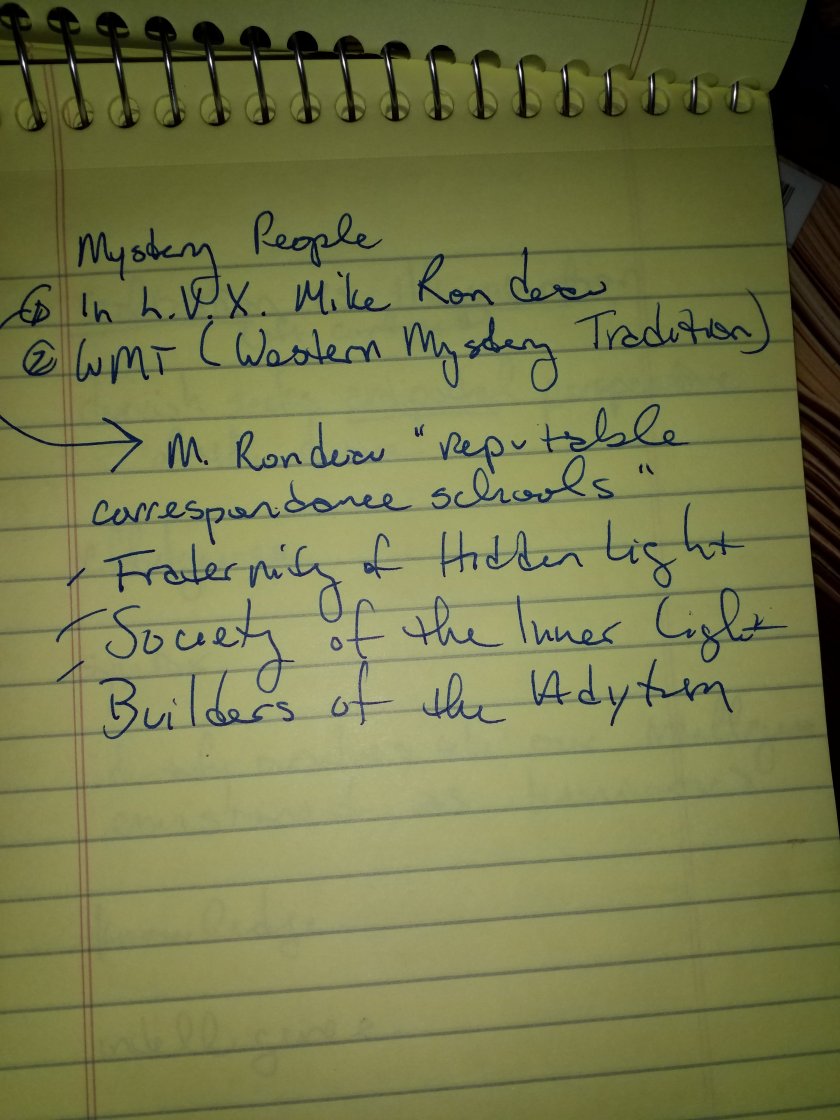 Mystery People
① In L.V.X. Mike Rondeau
② WMT (Western Mystery Tradition)
→ M. Rondeau "reputable
correspondance schools"
Fraternity of Hidden Light
Society of the Inner Light
Builders of the Adytum